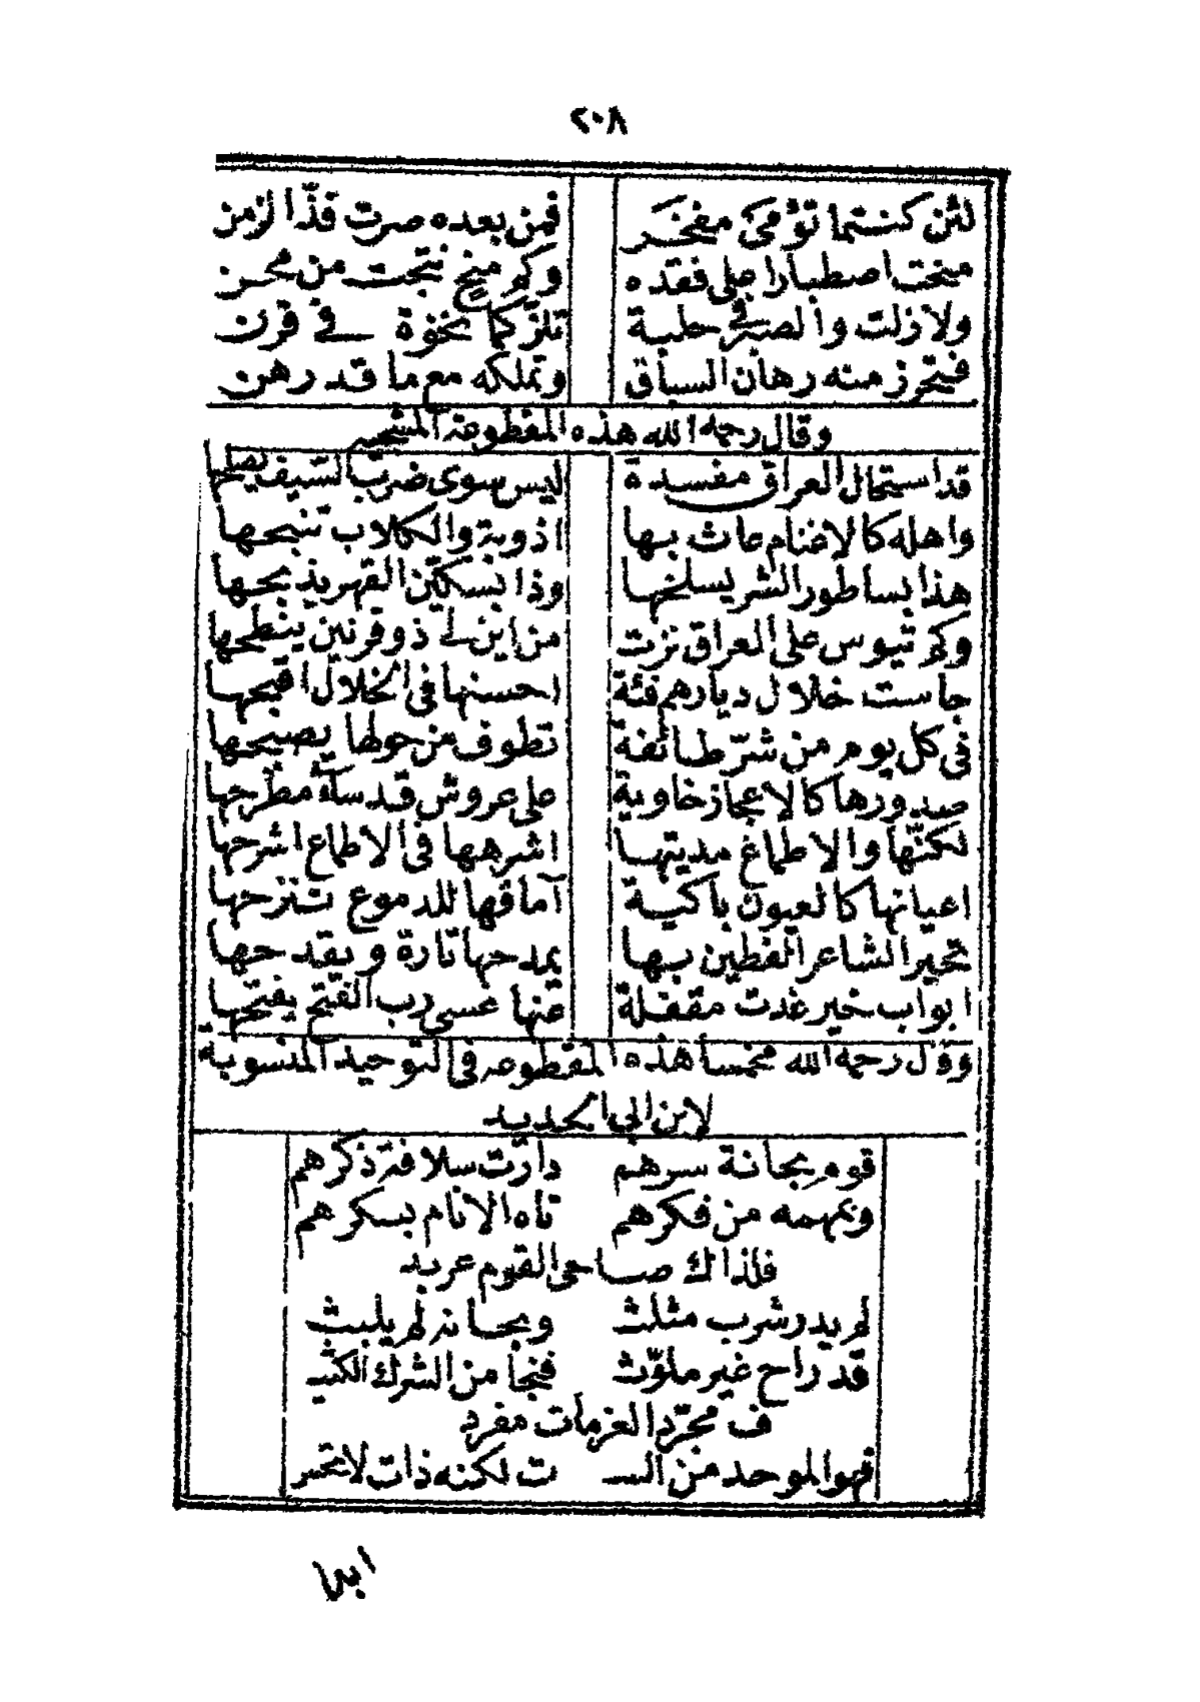 ٢٠٨
لئن كنتما تؤمَيْ مفخر فمن بعده صرت فذّا الزمن
منحت اصطبارا على فقده وكم منح نتجت من محن
ولا زلت والصنو في حلبة تلزّ كما نخوة في قرن
فتحرز منه رهان السباق وتملكه مع ما قد رهن
وقال رحمه الله هذه المقطوعة
قد استحال العراق مفسدة ليس سوى ضرب السيف يصلحها
واهله كالاغنام عاث بها اذوبة والكلاب تنبحها
هذا بساطور الشر يسلخها وذا بسكين القهر يذبحها
وكم تيوس على العراق نزت من اين لي ذو قرنين ينطحها
جاست خلال ديارهم فئة احسنها فى الخلال اقبحها
فى كل يوم من شرّ طائفة تطوف من حولها يصبحها
صدورها كالاعجاز خاوية على عروش قد ساء مطرحها
لكنّها والاطماع مديتها اشرهها فى الاطماع اشرحها
اعيانها كالعيون باكية آماقها للدموع تنزحها
تحير الشاعر الفطين بها يمدحها تارة ويقدحها
ابواب خير غدت مقفلة عنها عسى رب الفتح يفتحها
وقال رحمه الله مخمسا هذه المقطوعه فى التوحيد المنسوبة
لابن ابي الحديد
قوم بحانة سرهم دارت سلافة ذكرهم
وبمهمه من فكرهم تاه الانام بسكرهم
فلذاك صاحى القوم عربد
لم يدر شرب مثلث وبحانه لم يلبث
قد راح غير ملوّث فنجا من الشرك الكثيـ
ـف مجرّد العزمات مفرد
فهو الموحد من الســ ت لكنه ذات لا تحس
ابدا